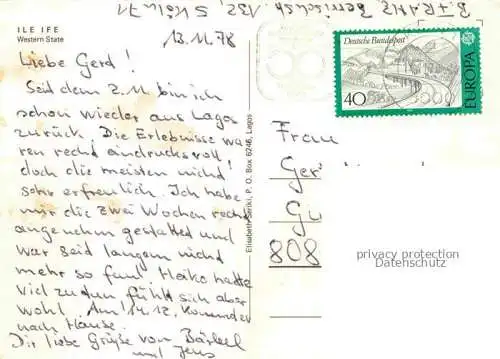 B. + R. Amz Berrischstr. 132, 5 Köln 71
ILE IFE
Western State
13.11.78
Liebe Gerd!
Seid dem 2.11 bin ich
schon wieder aus Lagos
zurück. Die Erlebnisse wa-
ren recht eindrucksvoll!
doch die meisten nicht
sehr erfreulich. Ich habe
mir die zwei Wochen recht
angenehm gestaltet und
war seid langem nicht
mehr so faul Heiko hatte
viel zu tun fühlt sich aber
wohl. Am 14.12. kommen wir
nach Hause.
Dir liebe Grüße von Bärbel
und Jens
Elisabeth Seriki, P. O. Box 6246, Lagos
Deutsche Bundespost
40
EUROPA
Frau
Ger
Gu
808
privacy protection
Datenschutz